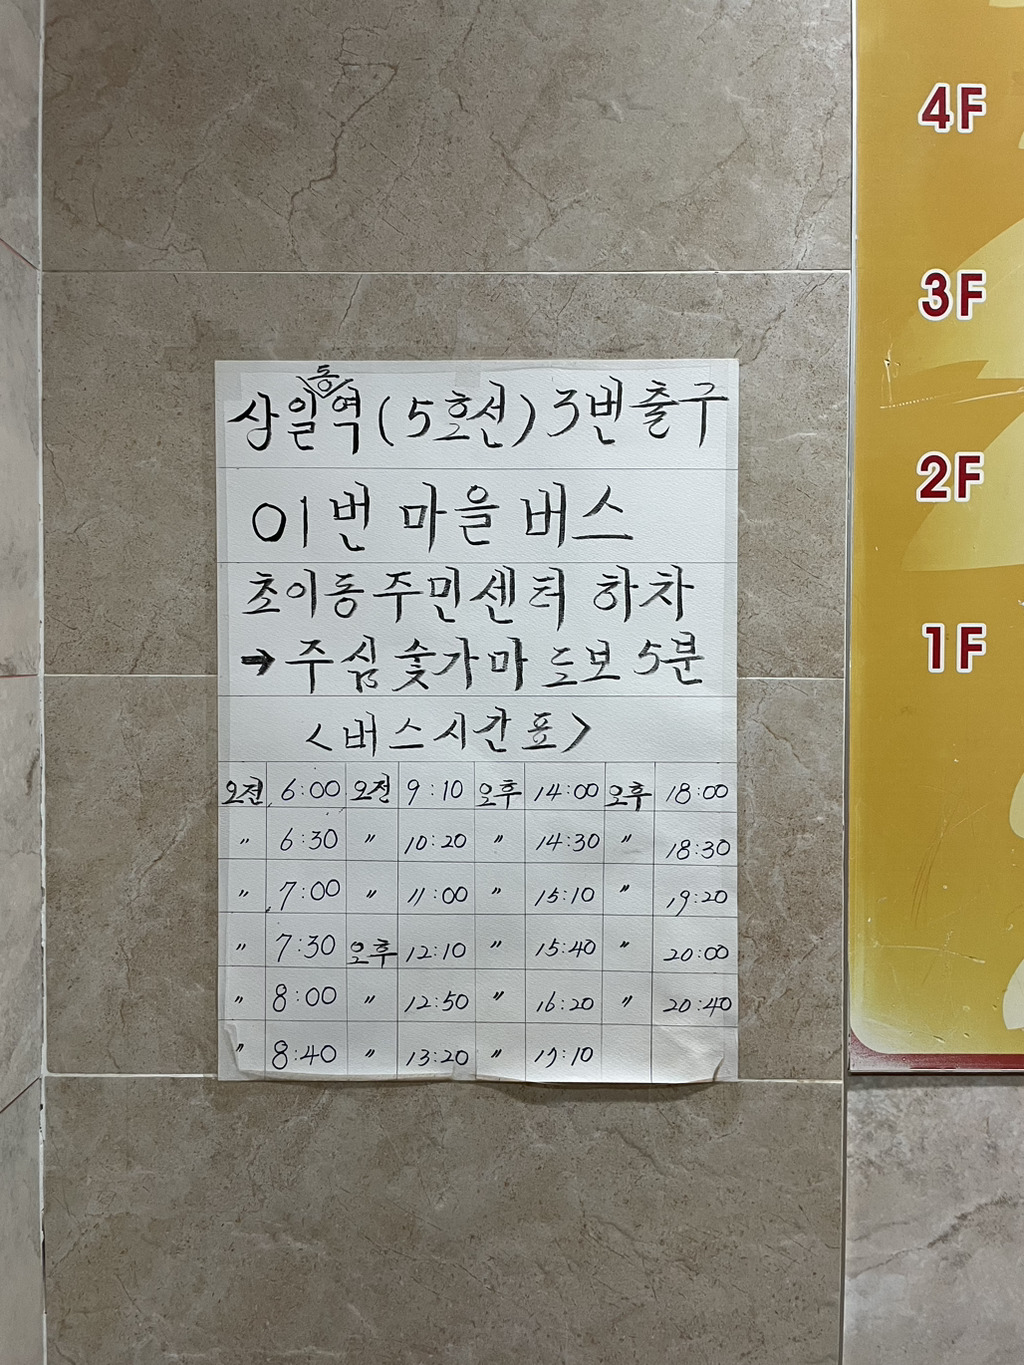 상일동역(5호선)3번출구
01번 마을버스
초이동주민센터 하차
→주심숯가마 도보 5분
<버스시간표>
오전 6:00 오전 9:10 오후 14:00 오후 18:00
〃 6:30 〃 10:20 〃 14:30 〃 18:30
〃 7:00 〃 11:00 〃 15:10 〃 19:20
〃 7:30 오후 12:10 〃 15:40 〃 20:00
〃 8:00 〃 12:50 〃 16:20 〃 20:40
〃 8:40 〃 13:20 〃 17:10
4F
3F
2F
1F